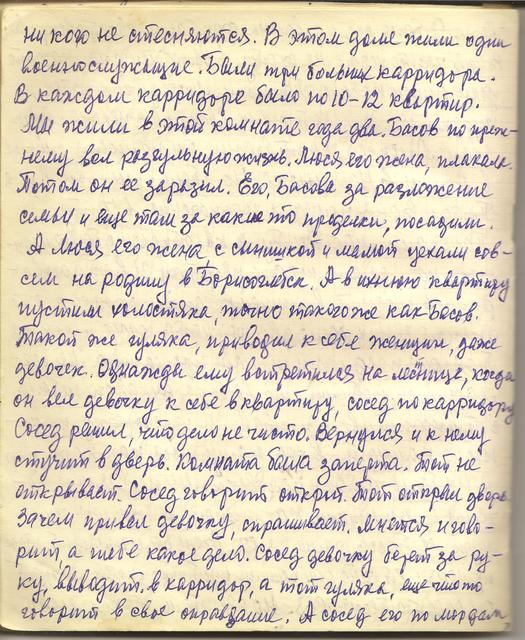 ни кого не стесняются. В этом доме жили одни
военнослужащие. Были три больших карридора.
В каждом карридоре было по 10-12 квартир.
Мы жили в этой комнате года два. Басов по преж-
нему вел разгульную жизнь. Люся его жена, плакала.
Потом он ее заразил. Его, Басова за разложение
семьи и еще там за какие то проделки, посадили.
А Люся его жена, с сынишкой и мамой уехали сов-
сем на родину в Борисоглебск. А в ихнюю квартиру
пустили холостяка, точно такого же как Басов.
Такой же гуляка, приводил к себе женщин, даже
девочек. Однажды ему встретился на лестнице, когда
он вел девочку к себе в квартиру, сосед по карридору
Сосед решил, что дело не чисто. Вернулся и к нему
стучит в дверь. Комната была заперта. Тот не
открывает. Сосед говорит открой. Тот открыл дверь.
Зачем привел девочку, спрашивает. Мнется и гово-
рит, а тебе какое дело. Сосед девочку берет за ру-
ку, выводит в карридор, а тот гуляка, еще что то
говорит в свое оправдание. А сосед его по мордам